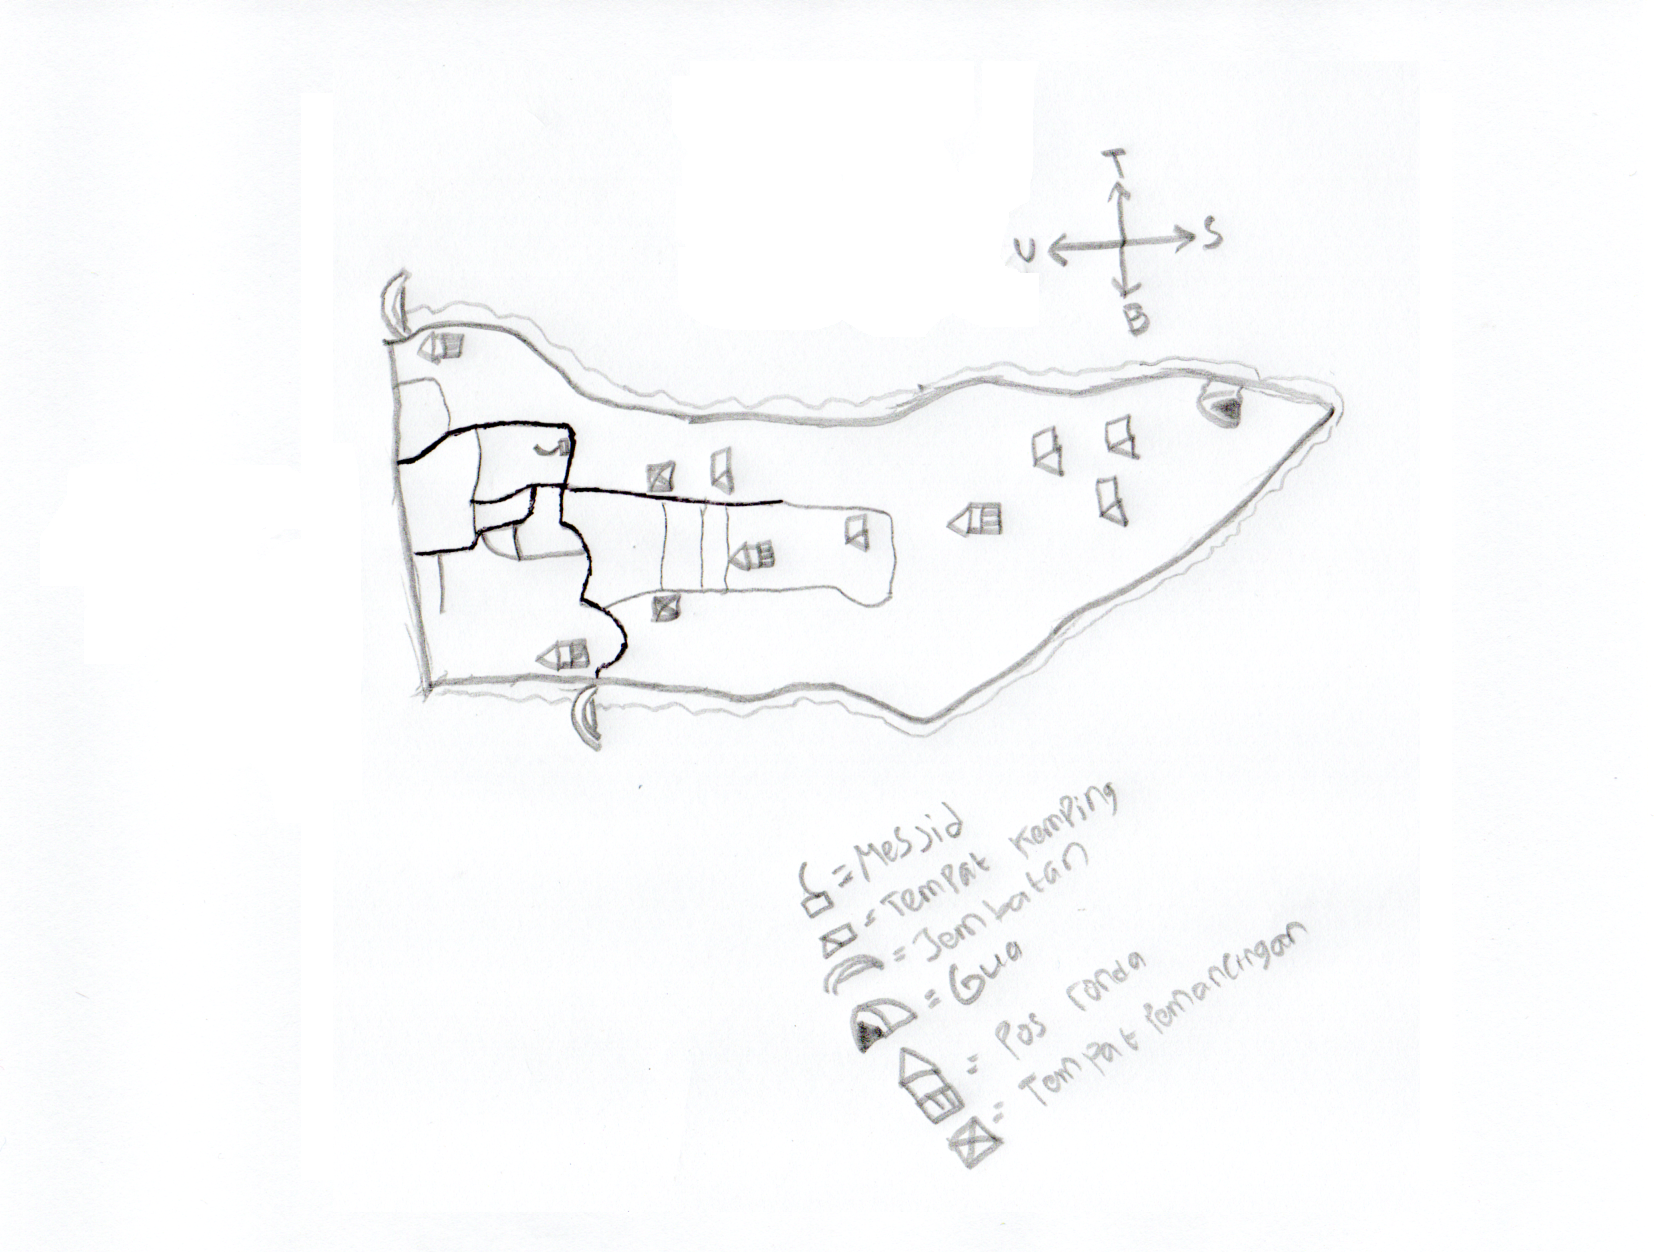 T
U S
B
= Messid
= Tempat Kemping
= Jembatan
= Gua
= Pos ronda
= Tempat Pemancingan